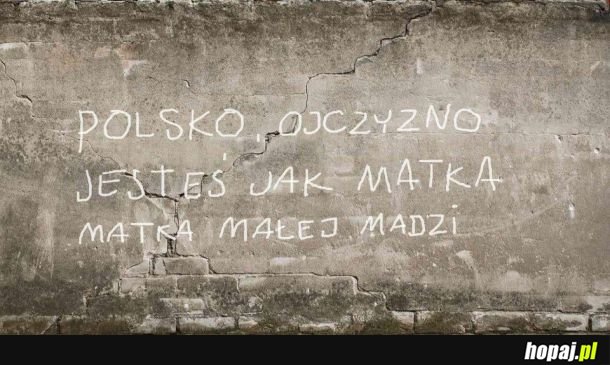 POLSKO, OJCZYZNO
JESTEŚ JAK MATKA
MATKA MAŁEJ MADZI
hopaj.pl